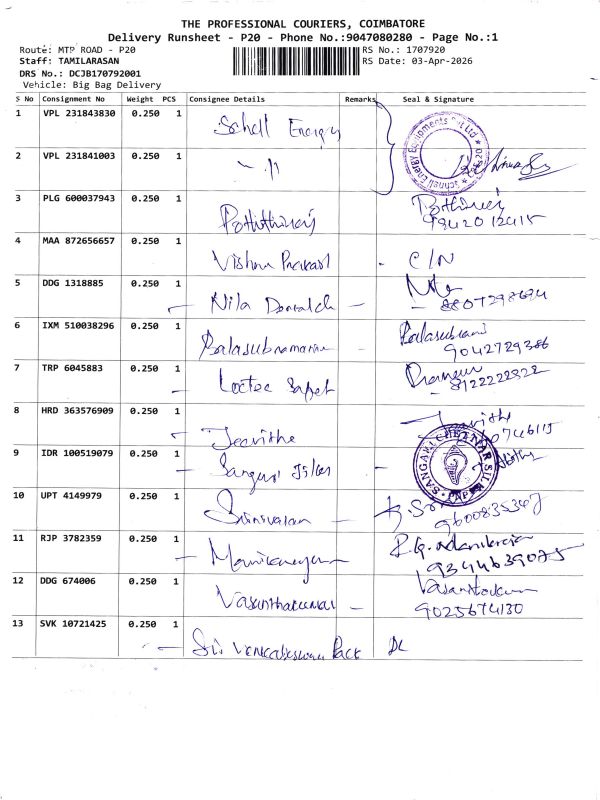 THE PROFESSIONAL COURIERS, COIMBATORE
Delivery Runsheet - P20 - Phone No.:9047080280 - Page No.:1
Route: MTP ROAD - P20 RS No.: 1707920
Staff: TAMILARASAN RS Date: 03-Apr-2026
DRS No.: DCJB170792001
Vehicle: Big Bag Delivery
S No Consignment No Weight PCS Consignee Details Remarks Seal & Signature
1 VPL 231843830 0.250 1 Schell Energy
2 VPL 231841003 0.250 1
3 PLG 600037943 0.250 1 Pothithiraj
4 MAA 872656657 0.250 1 Vishnu Prakash - C/N
5 DDG 1318885 0.250 1 Nila
6 IXM 510038296 0.250 1 Balasubramaniam Balasubramani
9042729386
7 TRP 6045883 0.250 1
8122222322
8 HRD 363576909 0.250 1 Jeevitha Jeevitha
9 IDR 100519079 0.250 1
10 UPT 4149979 0.250 1 Srinivasan
9600835347
11 RJP 3782359 0.250 1
9344639075
12 DDG 674006 0.250 1 Vasanthakumar - Vasanthakumar
9025674130
13 SVK 10721425 0.250 1 Sri Venkateswara Pack DC